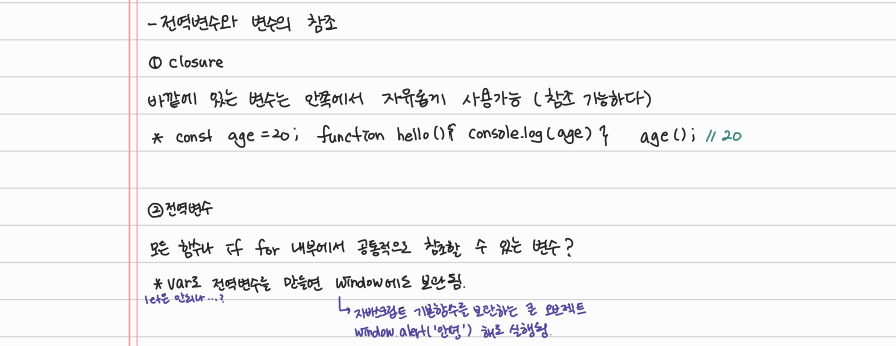 - 전역변수와 변수의 참조
① closure
바깥에 있는 변수는 안쪽에서 자유롭게 사용가능 (참조 가능하다)
* const age = 20; function hello(){ console.log(age) } age(); // 20
② 전역변수
모든 함수나 if for 내부에서 공통적으로 참조할 수 있는 변수?
* var로 전역변수를 만들면 window에도 보관됨.
let은 안되나...?
↳ 자바스크립트 기본함수를 보관하는 큰 오브젝트
window.alert('안녕') 해도 실행됨.